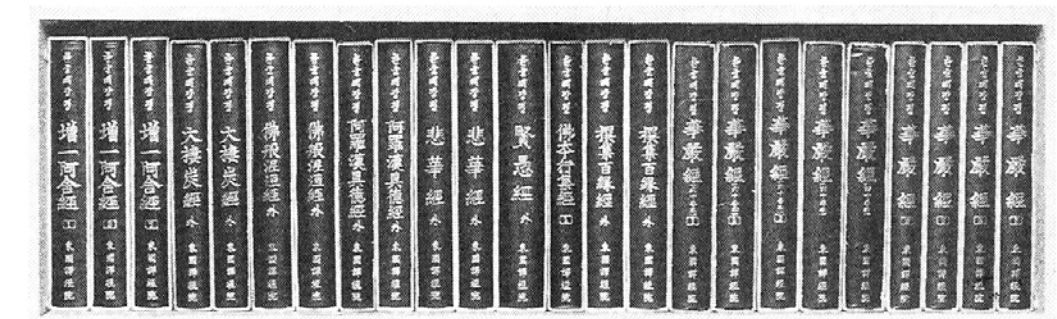 한글대장경 增一阿含經 東國譯經院
한글대장경 增一阿含經 東國譯經院
한글대장경 增一阿含經 東國譯經院
한글대장경 大樓炭經 外 東國譯經院
한글대장경 大樓炭經 外 東國譯經院
한글대장경 佛般泥洹經 外 東國譯經院
한글대장경 佛般泥洹經 外 東國譯經院
한글대장경 阿羅漢具德經 外 東國譯經院
한글대장경 阿羅漢具德經 外 東國譯經院
한글대장경 悲華經 外 東國譯經院
한글대장경 悲華經 外 東國譯經院
한글대장경 賢愚經 外 東國譯經院
한글대장경 佛本行集經 東國譯經院
한글대장경 撰集百緣經 外 東國譯經院
한글대장경 撰集百緣經 外 東國譯經院
한글대장경 華嚴經 東國譯經院
한글대장경 華嚴經 東國譯經院
한글대장경 華嚴經 東國譯經院
한글대장경 華嚴經 東國譯經院
한글대장경 華嚴經 東國譯經院
한글대장경 華嚴經 東國譯經院
한글대장경 華嚴經 東國譯經院
한글대장경 華嚴經 東國譯經院
한글대장경 華嚴經 東國譯經院